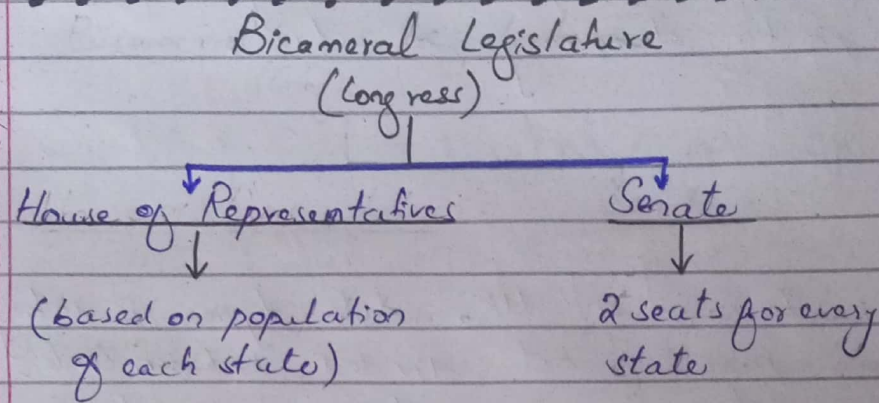 Bicameral Legislature
(Congress)
House of Representatives
Senate
(based on population
of each state)
2 seats for every
state